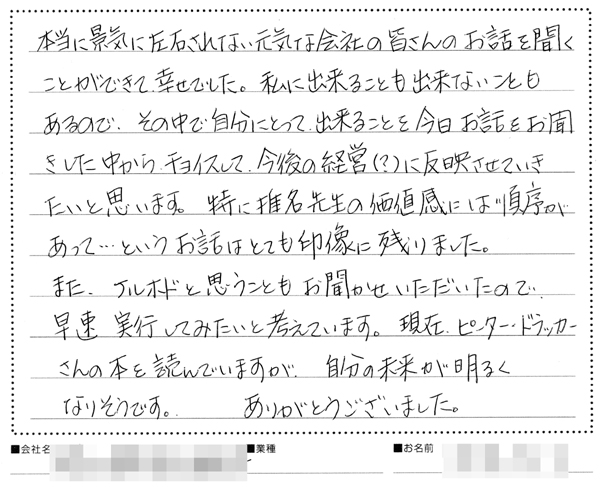 本当に景気に左右されない元気な会社の皆さんのお話を聞く
ことができて、幸せでした。私に出来ることも出来ないことも
あるので、その中で自分にとって、出来ることを今日お話をお聞
きした中から、チョイスして、今後の経営(?)に反映させていき
たいと思います。特に椎名先生の価値感には順序が
あって…というお話はとても印像に残りました。
また、ナルホドと思うこともお聞かせいただいたので、
早速実行してみたいと考えています。現在、ピーター・ドラッカー
さんの本を読んでいますが、自分の未来が明るく
なりそうです。 ありがとうございました。
■会社名 ■業種 ■お名前